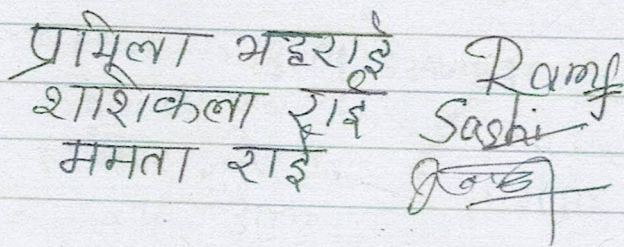 प्रमिला भट्टराई
शशिकला राई Sashi
ममता राई